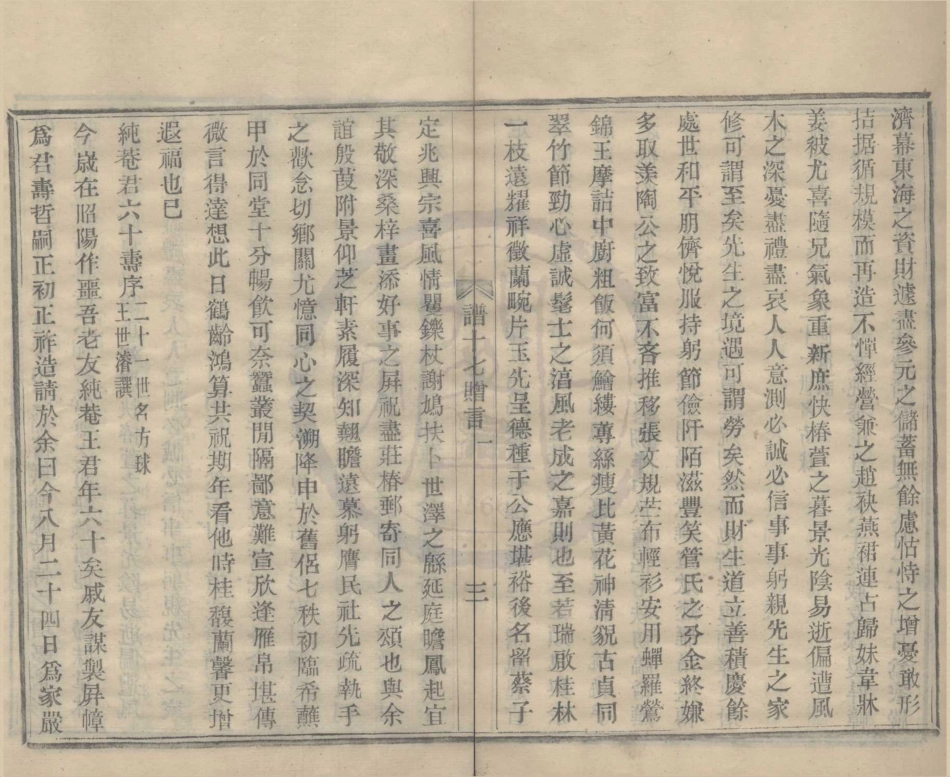 濟幕東海之資財遽盡參元之儲蓄無餘慮怙恃之增憂敢形
拮据循規模而再造不憚經營兼之趙袂燕裙連占歸妹韋牀
姜被尤喜隨兄氣象重新庶快椿萱之暮景光陰易逝偏遭風
木之深憂盡禮盡哀人人意測必誠必信事事躬親先生之家
修可謂至矣先生之境遇可謂勞矣然而財生道立善積慶餘
處世和平朋儕悅服持躬節儉阡陌滋豐笑管氏之分金終嫌
多取羨陶公之致富不吝推移張文規芒布輕衫安用蟬羅鶯
錦王摩詰中廚粗飯何須鱠縷蓴絲瘦比黃花神清貌古貞同
翠竹節勁心虛誠髦士之湻風老成之嘉則也至若瑞啟桂林
一枝遠耀祥徵蘭畹片玉先呈德種于公應堪裕後名留蔡子
譜十七贈言一
三
定兆興宗喜風情矍鑠杖謝鳩扶卜世澤之緜延庭瞻鳳起宜
其敬深桑梓畫添好事之屏祝盡莊椿郵寄同人之頌也與余
誼殷葭附景仰芝軒素履深知翹瞻遠慕躬膺民社先疏執手
之歡念切鄉關尤憶同心之契溯降申於舊侶七秩初臨希蘸
甲於同堂十分暢飲可奈蠶叢閒隔鄙意難宣欣逢雁帛堪傳
微言得達想此日鶴齡鴻算共祝期年看他時桂馥蘭馨更增
遐福也已
純菴君六十壽序二十一世名方球
王世濬譔
今歲在昭陽作噩吾老友純菴王君年六十矣戚友謀製屏幛
爲君壽哲嗣正初正祥造請於余曰今八月二十四日爲家嚴